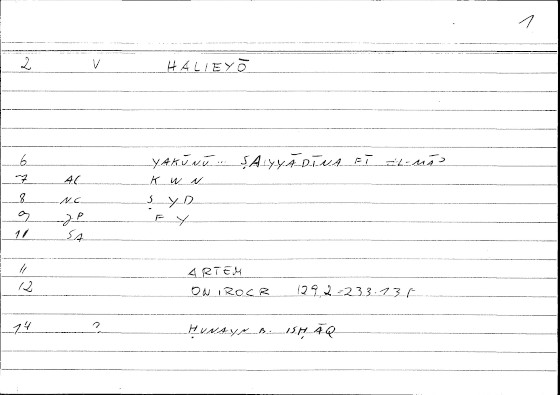 1
2 V HALIEYŌ
6 YAKŪNŪ... ṢAIYYĀDĪNA FĪ -L-MĀ'
7 AC K W N
8 NC Ṣ Y D
9 JP F Y
10 SA
11 ARTEM
12 ONIROCR 129,2-233.13
14 ? ḤUNAYN B. ISḤĀQ